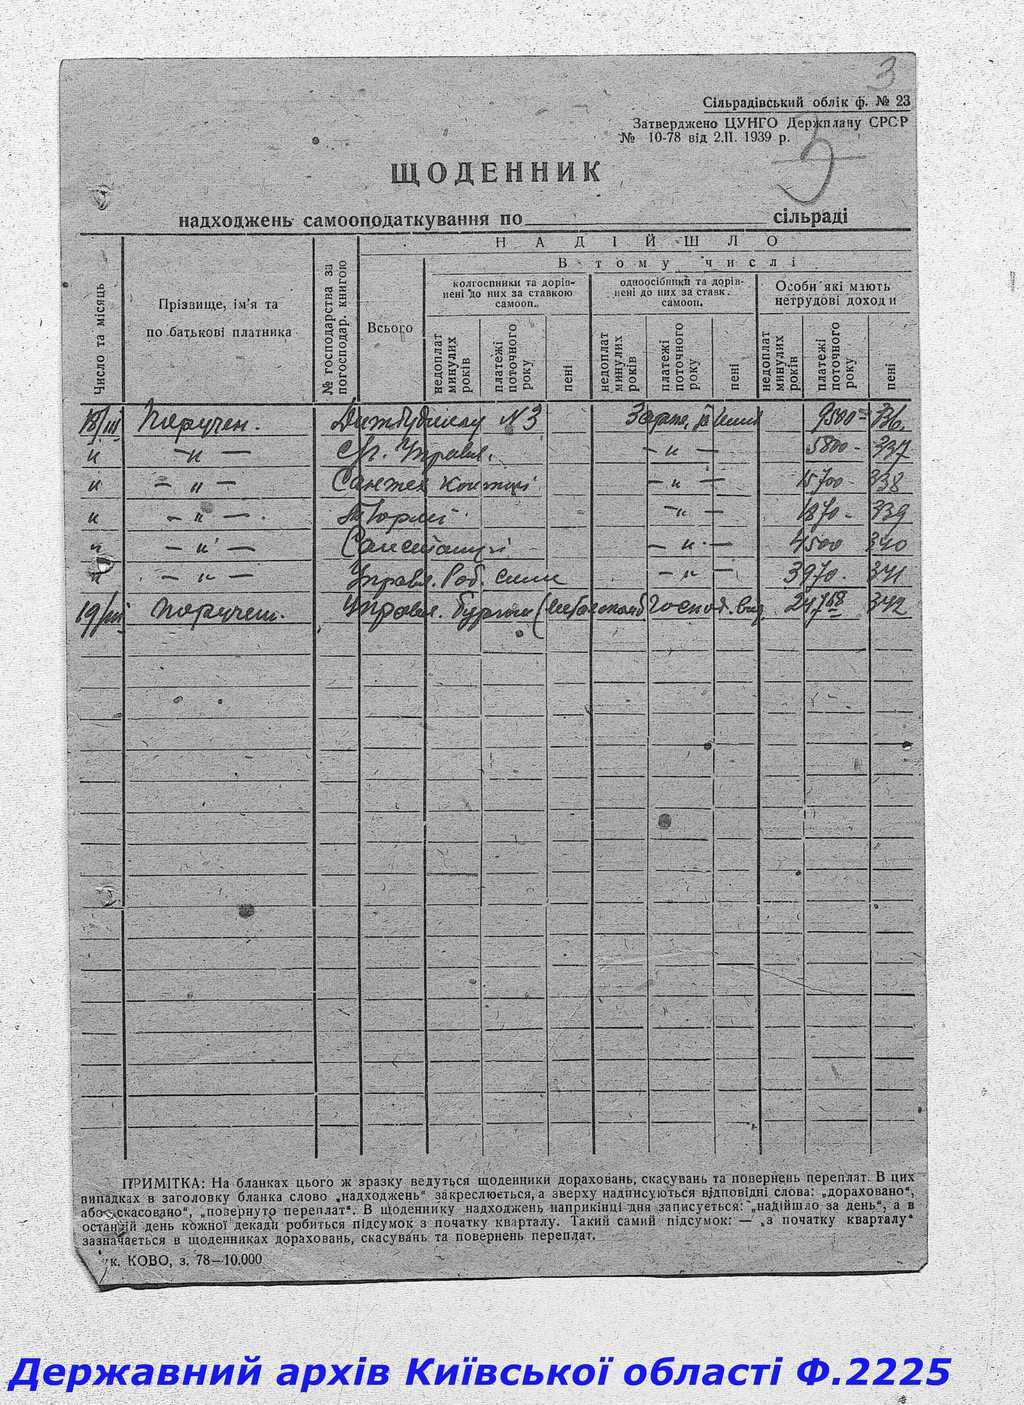 3
Сільрадівський облік ф. № 23
Затверджено ЦУНГО Держплану СРСР
№ 10-78 від 2.II. 1939 р.
5
ЩОДЕННИК
надходжень самооподаткування по сільраді
Число та місяць
Прізвище, ім'я та
по батькові платника
№ господарства за
погосподар. книгою
НАДІЙШЛО
Всього
В тому числі
колгоспники та дорів-
нені до них за ставкою
самооп.
одноосібники та дорів-
нені до них за ставк.
самооп.
Особи які мають
нетрудові доходи
недоплат
минулих
років
платежі
поточного
року
пені
недоплат
минулих
років
платежі
поточного
року
пені
недоплат
минулих
років
платежі
поточного
року
пені
18/III Поручен. Дитбудинку N 3 9500- 336
" -"- Управл. -"- 5800- 337
" -"- -"- 15700- 338
" -"- Тюрмі -"- 1870- 339
" -"- -"- 4500 340
" -"- Управл. Роб. сили -"- 3970- 341
19/III Поручен. Управл. господ. 342
ПРИМІТКА: На бланках цього ж зразку ведуться щоденники дораховань, скасувань та повернень переплат. В цих
випадках в заголовку бланка слово „надходжень" закреслюється, а зверху надписуються відповідні слова: „дораховано",
або „скасовано", „повернуто переплат". В щоденнику надходжень наприкінці дня записується: „надійшло за день", а в
останій день кожної декади робиться підсумок з початку кварталу. Такий самий підсумок: — „з початку кварталу"
зазначається в щоденниках дораховань, скасувань та повернень переплат.
к. КОВО, з. 78—10.000
Державний архів Київської області Ф.2225